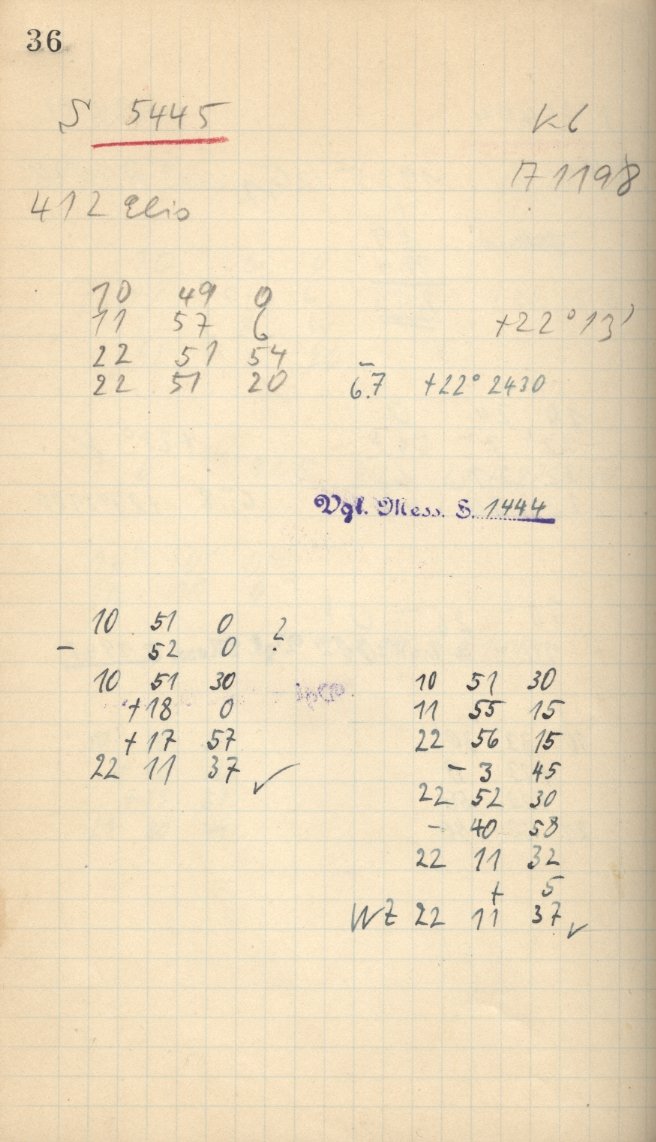 36
S 5445
K6
171198
412 Elis
10 49 0
11 57 6
+22° 13'
22 51 54
22 51 20 6.7 +22° 2430
Vgl. Mess. S. 1444
10 51 0 ?
- 52 0
10 51 30
+18 0
+17 57
22 11 37 ✓
10 51 30
11 55 15
22 56 15
- 3 45
22 52 30
- 40 58
22 11 32
+ 5
WZ 22 11 37 ✓